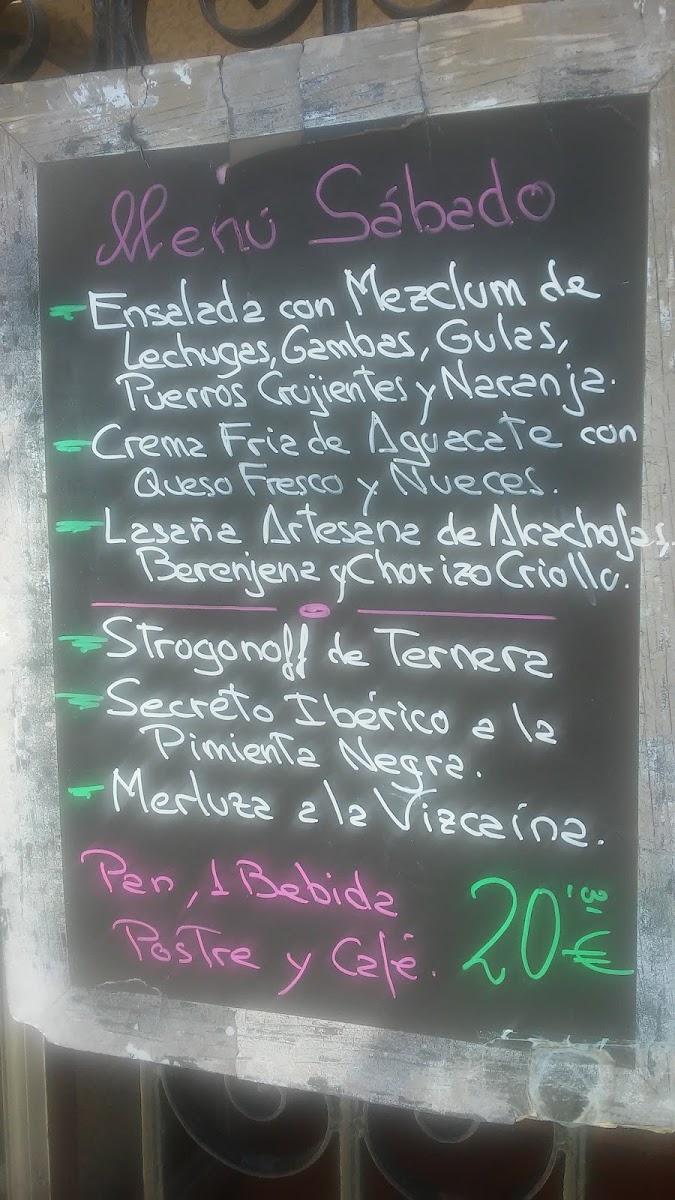 Menú Sábado
- Ensalada con Mezclum de
Lechugas, Gambas, Gulas,
Puerros Crujientes y Naranja.
- Crema Fria de Aguacate con
Queso Fresco y Nueces.
- Lasaña Artesana de Alcachofas,
Berenjena y Chorizo Criollo.
- Strogonoff de Ternera
- Secreto Ibérico a la
Pimienta Negra.
- Merluza a la Vizcaína.
Pan, 1 Bebida
Postre y Café.
20 €